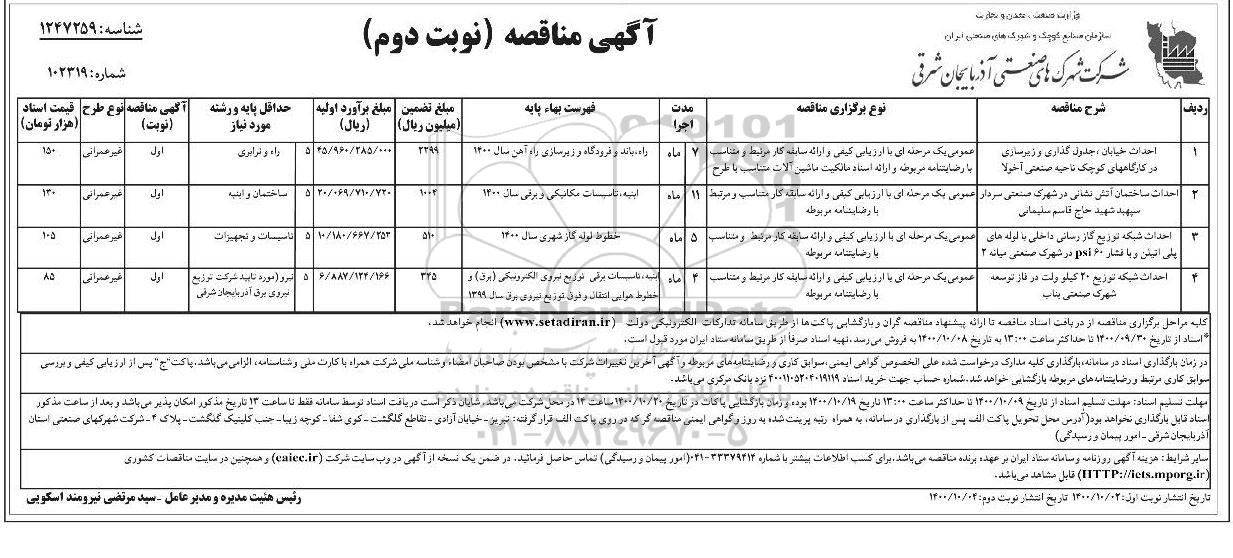 وزارت صنعت، معدن و تجارت
سازمان صنایع کوچک و شهرک های صنعتی ایران
شرکت شهرک های صنعتی آذربایجان شرقی
آگهی مناقصه (نوبت دوم)
شناسه: ۱۲۴۷۲۵۹
شماره: ۱۰۲۳۱۹
ردیف شرح مناقصه نوع برگزاری مناقصه مدت اجرا فهرست بهاء پایه مبلغ تضمین (میلیون ریال) مبلغ برآورد اولیه (ریال) حداقل پایه و رشته مورد نیاز آگهی مناقصه (نوبت) نوع طرح قیمت اسناد (هزار تومان)
۱ احداث خیابان ،جدول گذاری و زیرسازی در کارگاههای کوچک ناحیه صنعتی آخولا عمومی یک مرحله ای با ارزیابی کیفی و ارائه سابقه کار مرتبط و متناسب با رضایتنامه مربوطه و ارائه اسناد مالکیت ماشین آلات متناسب با طرح ۷ ماه راه،باند و فرودگاه و زیرسازی راه آهن سال ۱۴۰۰ ۲۲۹۹ ۴۵/۹۶۰/۲۸۵/۰۰۰ ۵ راه و ترابری اول غیرعمرانی ۱۵۰
۲ احداث ساختمان آتش نشانی در شهرک صنعتی سردار سپهبد شهید حاج قاسم سلیمانی عمومی یک مرحله ای با ارزیابی کیفی و ارائه سابقه کار متناسب و مرتبط با رضایتنامه مربوطه ۱۱ ماه ابنیه، تاسیسات مکانیکی و برقی سال ۱۴۰۰ ۱۰۰۴ ۲۰/۰۶۹/۷۱۰/۷۲۰ ۵ ساختمان و ابنیه اول غیرعمرانی ۱۳۰
۳ احداث شبکه توزیع گاز رسانی داخلی با لوله های پلی اتیلن و با فشار ۶۰ psi در شهرک صنعتی میانه ۲ عمومی یک مرحله ای با ارزیابی کیفی و ارائه سابقه کار مرتبط و متناسب با رضایتنامه مربوطه ۵ ماه خطوط لوله گاز شهری سال ۱۴۰۰ ۵۱۰ ۱۰/۱۸۰/۶۶۷/۲۵۳ ۵ تاسیسات و تجهیزات اول غیرعمرانی ۱۰۵
۴ احداث شبکه توزیع ۲۰ کیلو ولت در فاز توسعه شهرک صنعتی بناب عمومی یک مرحله ای با ارزیابی کیفی و ارائه سابقه کار مرتبط و متناسب با رضایتنامه مربوطه ۴ ماه ابنیه، تاسیسات برقی توزیع نیروی الکترونیکی (برق) و خطوط هوایی انتقال و فوق توزیع نیروی برق سال ۱۳۹۹ ۳۴۵ ۶/۸۸۷/۱۲۴/۱۶۶ ۵ نیرو (مورد تایید شرکت توزیع نیروی برق آذربایجان شرقی اول غیرعمرانی ۸۵
کلیه مراحل برگزاری مناقصه از دریافت اسناد مناقصه تا ارائه پیشنهاد مناقصه گران و بازگشایی پاکت‌ها از طریق سامانه تدارکات الکترونیکی دولت (www.setadiran.ir) انجام خواهد شد.
*اسناد از تاریخ ۱۴۰۰/۰۹/۳۰ تا حداکثر ساعت ۱۳:۰۰ به تاریخ ۱۴۰۰/۱۰/۰۸ به فروش می‌رسد.تهیه اسناد صرفاً از طریق سامانه ستاد ایران مورد قبول است.
در زمان بارگذاری اسناد در سامانه،بارگذاری کلیه مدارک درخواست شده علی الخصوص گواهی ایمنی،سوابق کاری و رضایتنامه‌های مربوطه و آگهی آخرین تغییرات شرکت با مشخص بودن صاحبان امضاء و شناسه ملی شرکت همراه با کارت ملی و شناسنامه، الزامی می‌باشد.پاکت"ج" پس از ارزیابی کیفی و بررسی
سوابق کاری مرتبط و رضایتنامه‌های مربوطه بازگشایی خواهد شد.شماره حساب جهت خرید اسناد ۴۰۰۱۱۰۵۲۰۴۰۱۹۱۱۹ نزد بانک مرکزی می‌باشد.
مهلت تسلیم اسناد: مهلت تسلیم اسناد از تاریخ ۱۴۰۰/۱۰/۰۹ تا حداکثر ساعت ۱۳:۰۰ تاریخ ۱۴۰۰/۱۰/۱۹ بوده و زمان بازگشایی پاکات در تاریخ ۱۴۰۰/۱۰/۲۰ ساعت ۱۴ در محل شرکت می‌باشد.شایان ذکر است دریافت اسناد توسط سامانه فقط تا ساعت ۱۳ تاریخ مذکور امکان پذیر می‌باشد و بعد از ساعت مذکور
اسناد قابل بارگذاری نخواهد بود(آدرس محل تحویل پاکت الف پس از بارگذاری در سامانه، به همراه رتبه پرینت‌شده به روز و گواهی ایمنی مناقصه گر که در روی پاکت الف قرار گرفته: تبریز-خیابان آزادی - تقاطع گلگشت - کوی شفا - کوچه زیبا- جنب کلینیک گلگشت - پلاک ۴ - شرکت شهرکهای صنعتی استان
آذربایجان شرقی - امور پیمان و رسیدگی)
سایر شرایط: هزینه آگهی روزنامه وسامانه ستاد ایران بر عهده برنده مناقصه می‌باشد.برای کسب اطلاعات بیشتر با شماره ۳۳۳۷۹۴۱۴-۰۴۱(امور پیمان و رسیدگی) تماس حاصل فرمائید. در ضمن یک نسخه از آگهی در وب سایت شرکت (caiec.ir) و همچنین در سایت مناقصات کشوری
(HTTP://iets.mporg.ir) قابل مشاهده می‌باشد.
تاریخ انتشار نوبت اول: ۱۴۰۰/۱۰/۰۲ تاریخ انتشار نوبت دوم:۱۴۰۰/۱۰/۰۴
رئیس هئیت مدیره و مدیر عامل -سید مرتضی نیرومند اسکویی
ParsNamadData
۰۲۱-۸۸۳۴۹۶۷۰-۵